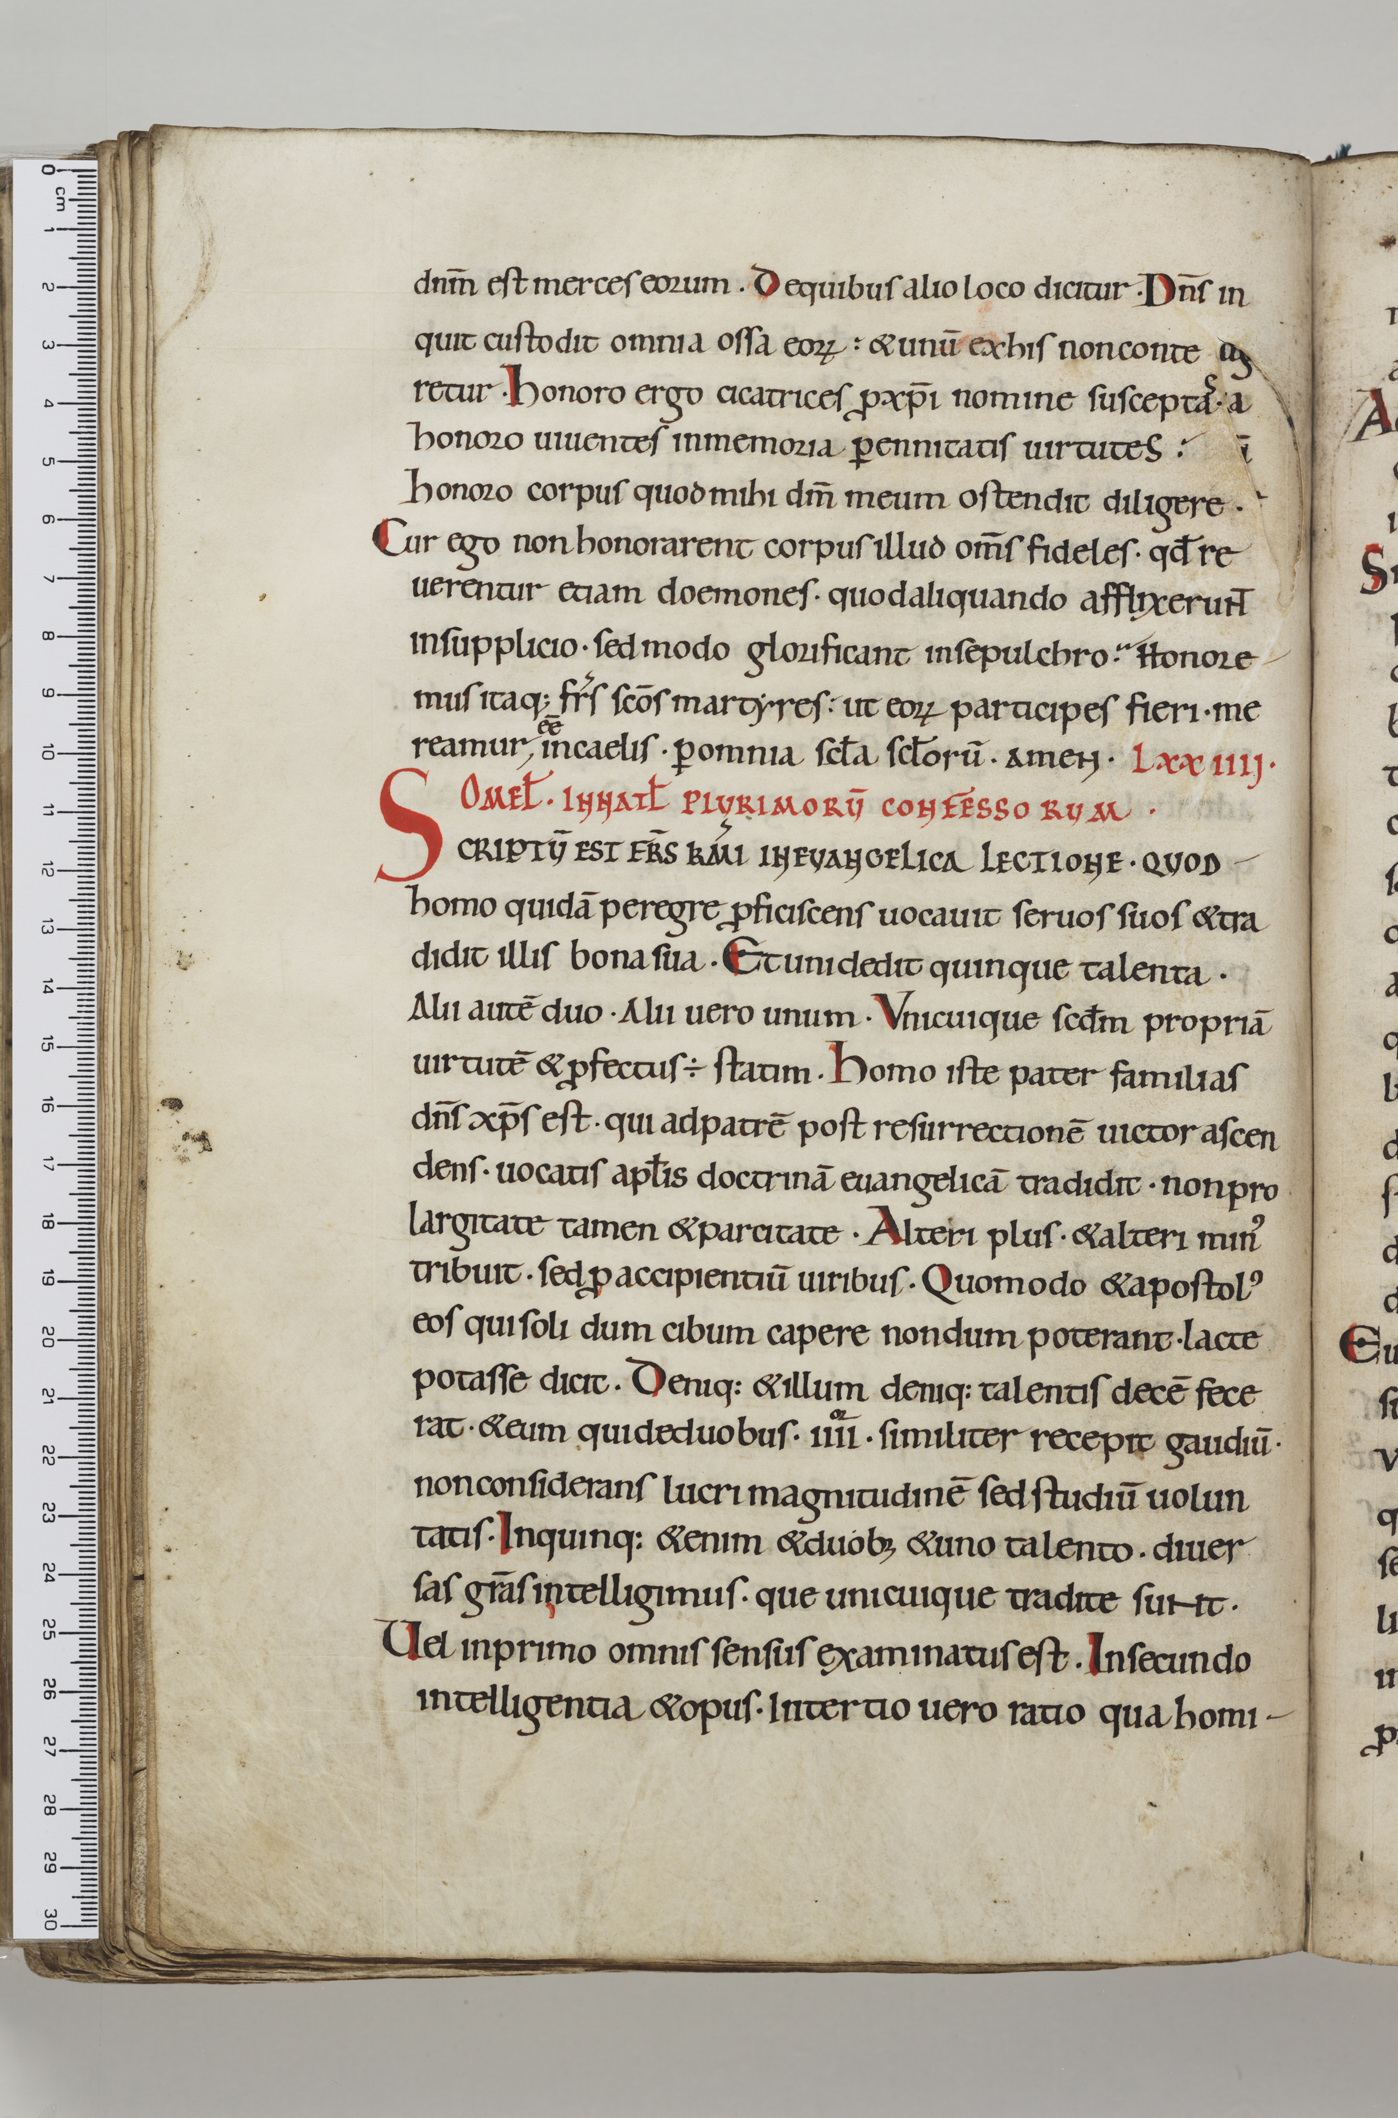 dnm̄ est merces eorum. De quibus alio loco dicitur. Dn̄s in
quit custodit omnia ossa eoꝝ: & unū ex his non conte
retur. Honoro ergo cicatrices ꝓ xp̄i nomine suscepta.
honoro uiuentes in memoria ꝑennitatis uirtutes:
honoro corpus quod mihi dm̄ meum ostendit diligere.
Cur ego non honorarent corpus illud om̄s fideles. qđ re
uerentur etiam doemones. quod aliquando afflixerunt
in supplicio. sed modo glorificant in sepulchro. Honore
mus itaq; fr̄s sc̄os martyres: ut eoꝝ participes fieri. me
reamur, ēē in caelis. ꝑ omnia scl̄a scl̄orū. amen. LXXIIII.
OMEL̄. IN NATL̄ PLURIMORŪ CONFESSORUM.
SCRIPTŪ EST FR̄S KM̄I IN EVANGELICA LECTIONE. QUOD
homo quidā peregre ꝓficiscens uocauit seruos suos & tra
didit illis bona sua. Et uni dedit quinque talenta.
Alii autē duo. Alii uero unum. Vnicuique scd̄m propriā
uirtutē & ꝓfectus ÷ statim. Homo iste pater familias
dn̄s xp̄s est. qui ad patrē post resurrectionē uictor ascen
dens. uocatis apl̄is doctrinā euangelicā tradidit. non pro
largitate tamen & parcitate. Alteri plus. & alteri minꝰ
tribuit. sed ꝓ accipientiū uiribus. Quomodo & apostolꝰ
eos qui soli dum cibum capere nondum poterant. lacte
potasse dicit. Deniq: & illum deniq: talentis decē fece
rat. & eum qui de duobus. iiii. similiter recepit gaudiū.
non considerans lucri magnitudinē sed studiū uolun
tatis. In quinq: & enim & duobꝫ & uno talento. diuer
sas gr̄as intelligimus. que unicuique tradite sunt.
Vel in primo omnis sensus examinatus est. In secundo
intelligentia & opus. In tertio uero ratio qua homi